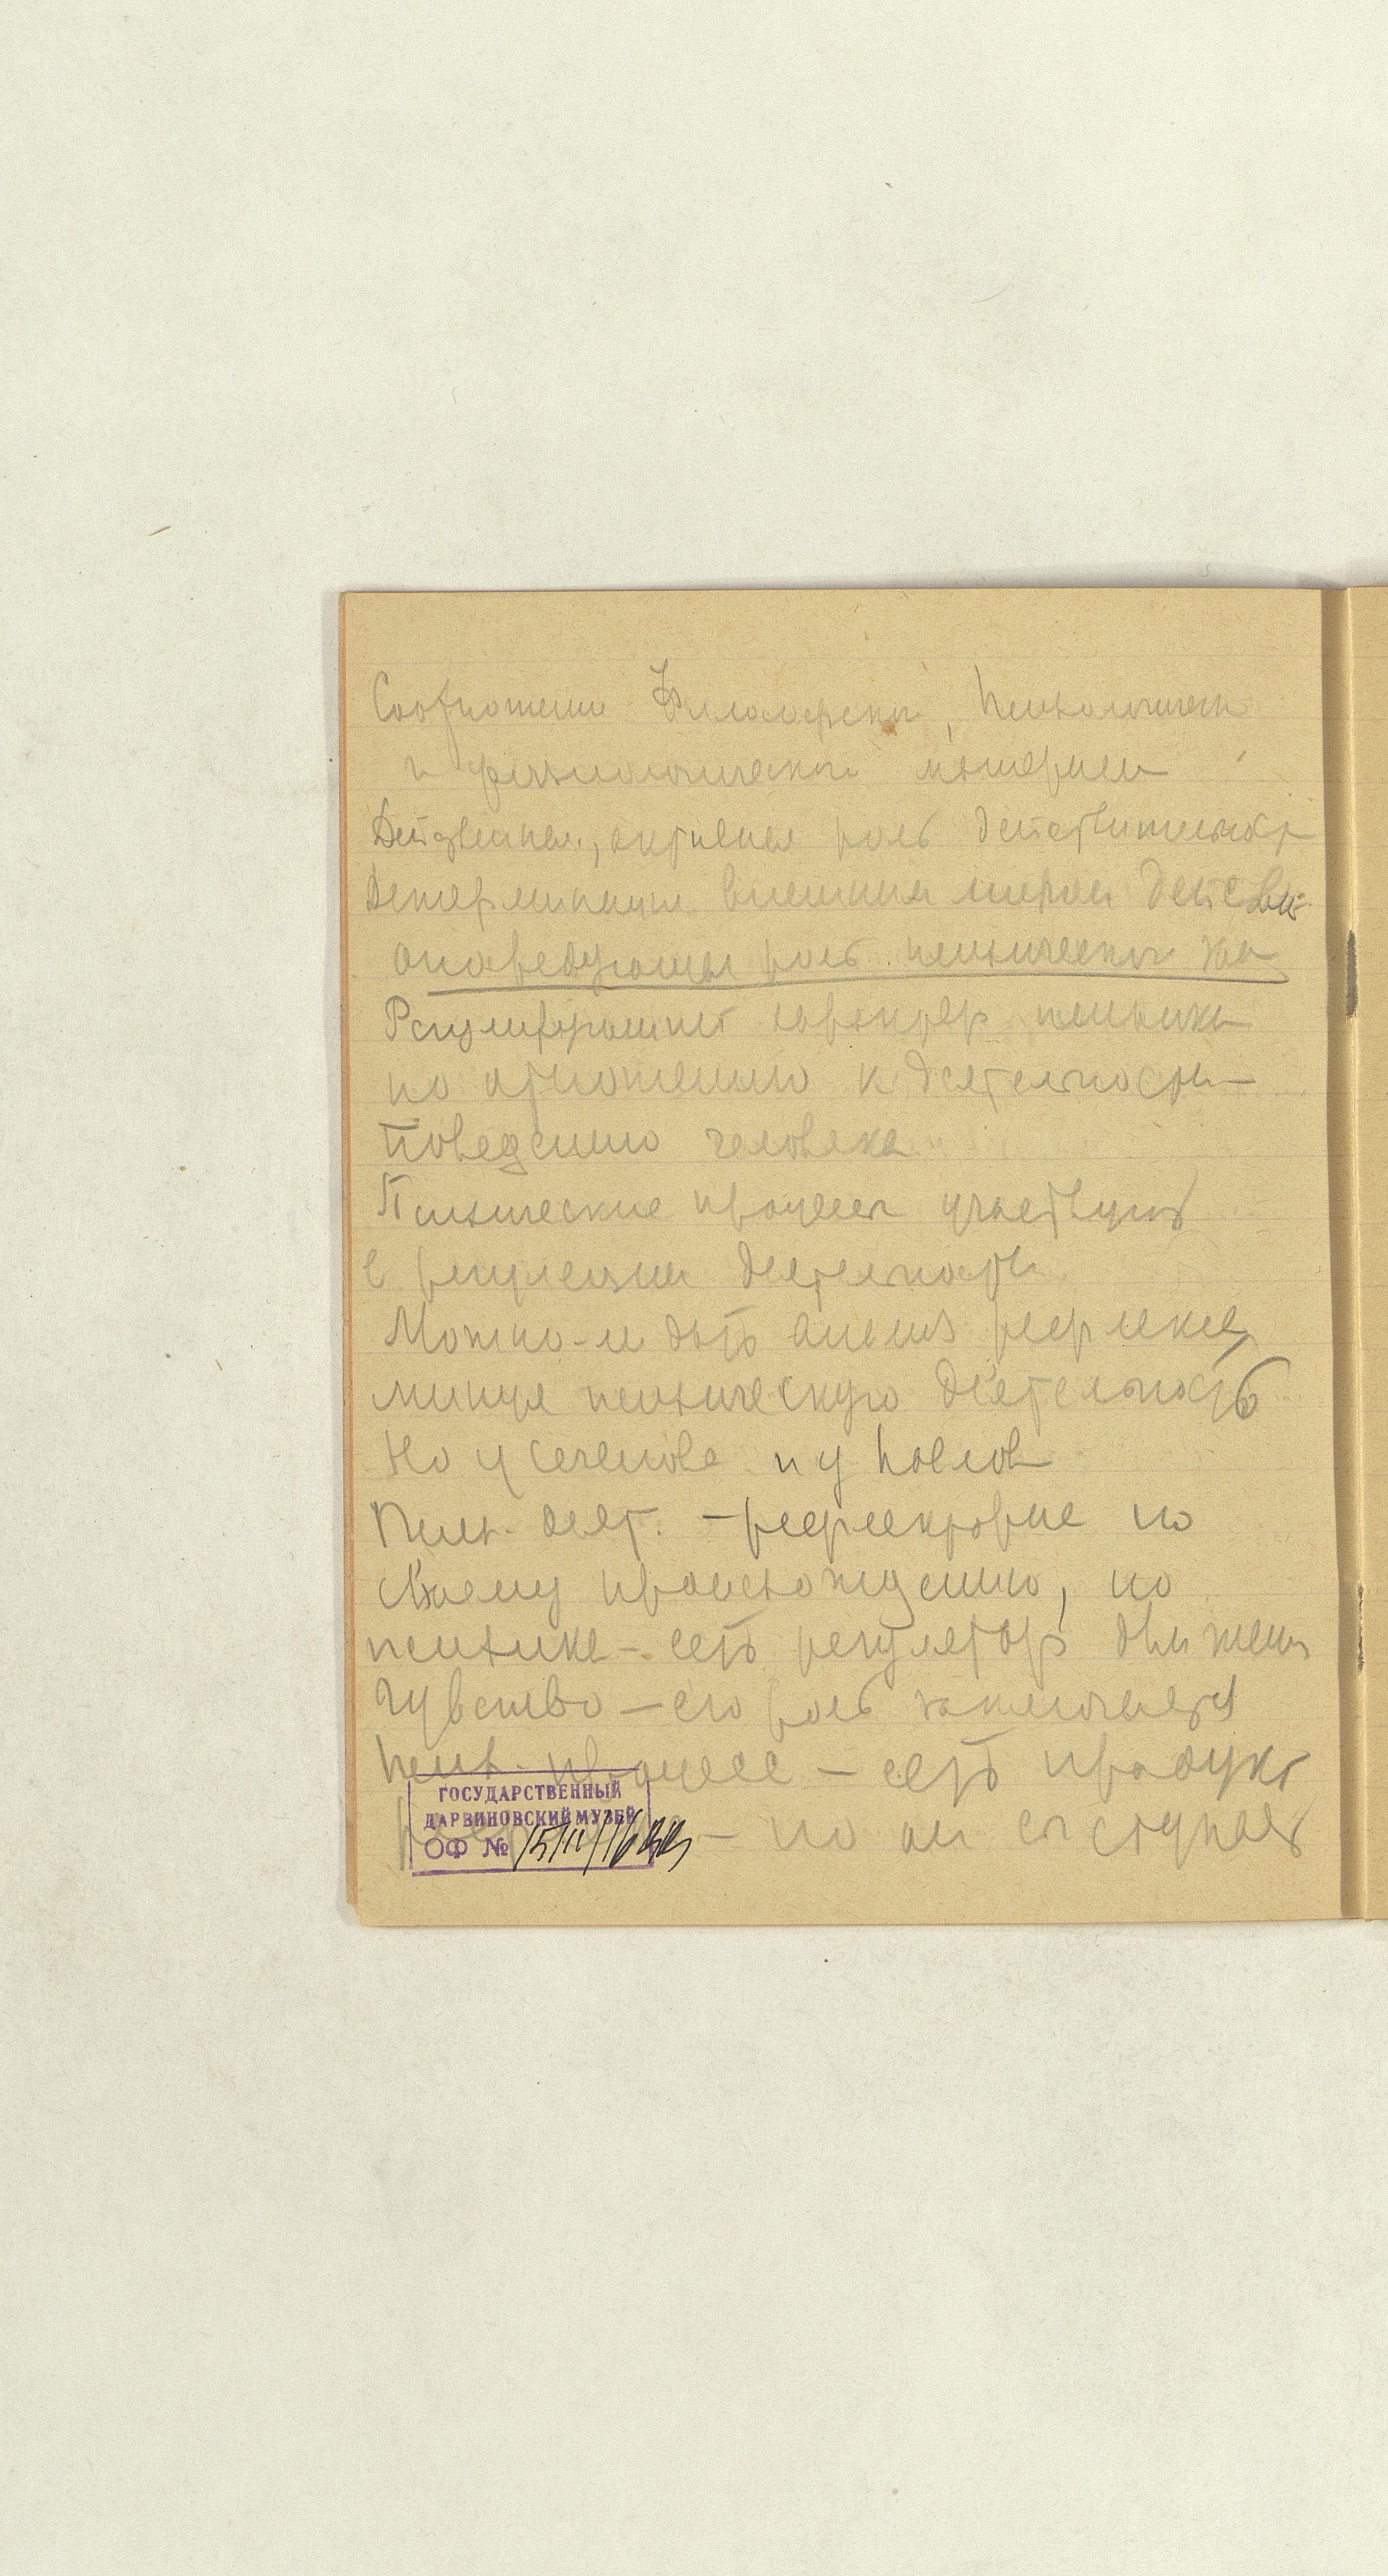 Соотношение Философски, Психологическ
и физиологическои материи
Действенная, активная роль действительност
Детерминации внешним миром действи
опосредующая роль психически
Регуляторный характер психики
по отношению к деятельности
Поведению человека
Психические процессы участвуют
в регуляции деятельности
Можно-ли дать анализ рефлекса,
минуя психическую деятельность
Но у Сеченова и у Павлова
Псих. деят. - рефлекторные по
своему происхождению, но
психика - есть регулятор движения
Чувство - его роль заключается
Псих. процесс - есть продукт
- но он выступает
ГОСУДАРСТВЕННЫЙ
ДАРВИНОВСКИЙ МУЗЕЙ
ОФ №